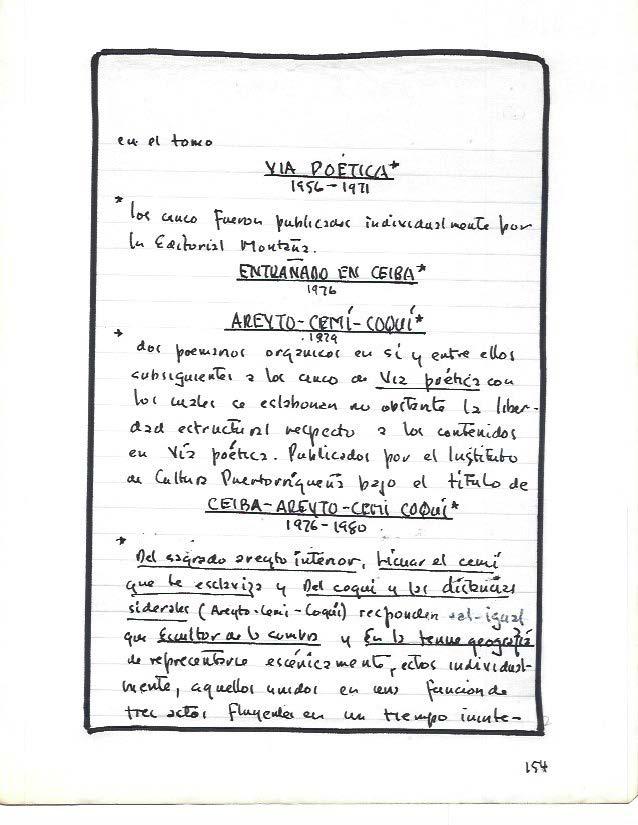 en el tomo
VIA POÉTICA*
1956-1971
* los cinco fueron publicados individualmente por
la Editorial Montaña.
ENTRAÑADO EN CEIBA*
1976
AREYTO-CEMÍ-COQUÍ*
1979
* dos poemarios orgánicos en sí y entre ellos
subsiguientes a los cinco de Vía poética con
los cuales se eslabonan no obstante la liber-
dad estructural respecto a los contenidos
en Vía poética. Publicados por el Instituto
de Cultura Puertorriqueña bajo el título de
CEIBA-AREYTO-CEMÍ COQUÍ*
1976-1980
* Del sagrado areyto interior, Licuar el cemí
que te esclaviza y Del coquí y las distancias
siderales (Areyto-Cemí-Coquí) responden al igual
que Escultor de la sombra y En la tenue geografía
de representarse escénicamente, estos individual-
mente, aquellos unidos en una función de
tres actos fluyentes en un tiempo ininte-
154